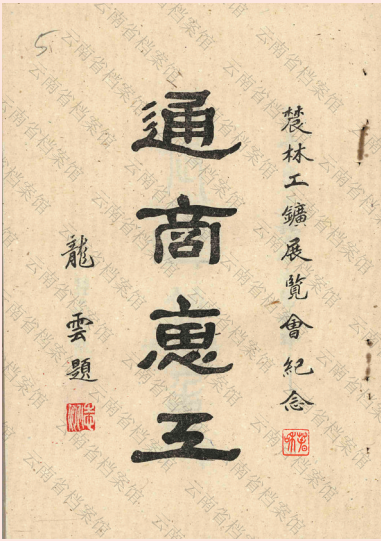 農林工鑛展覧會紀念
通商惠工
龍雲題
5
云南省档案馆